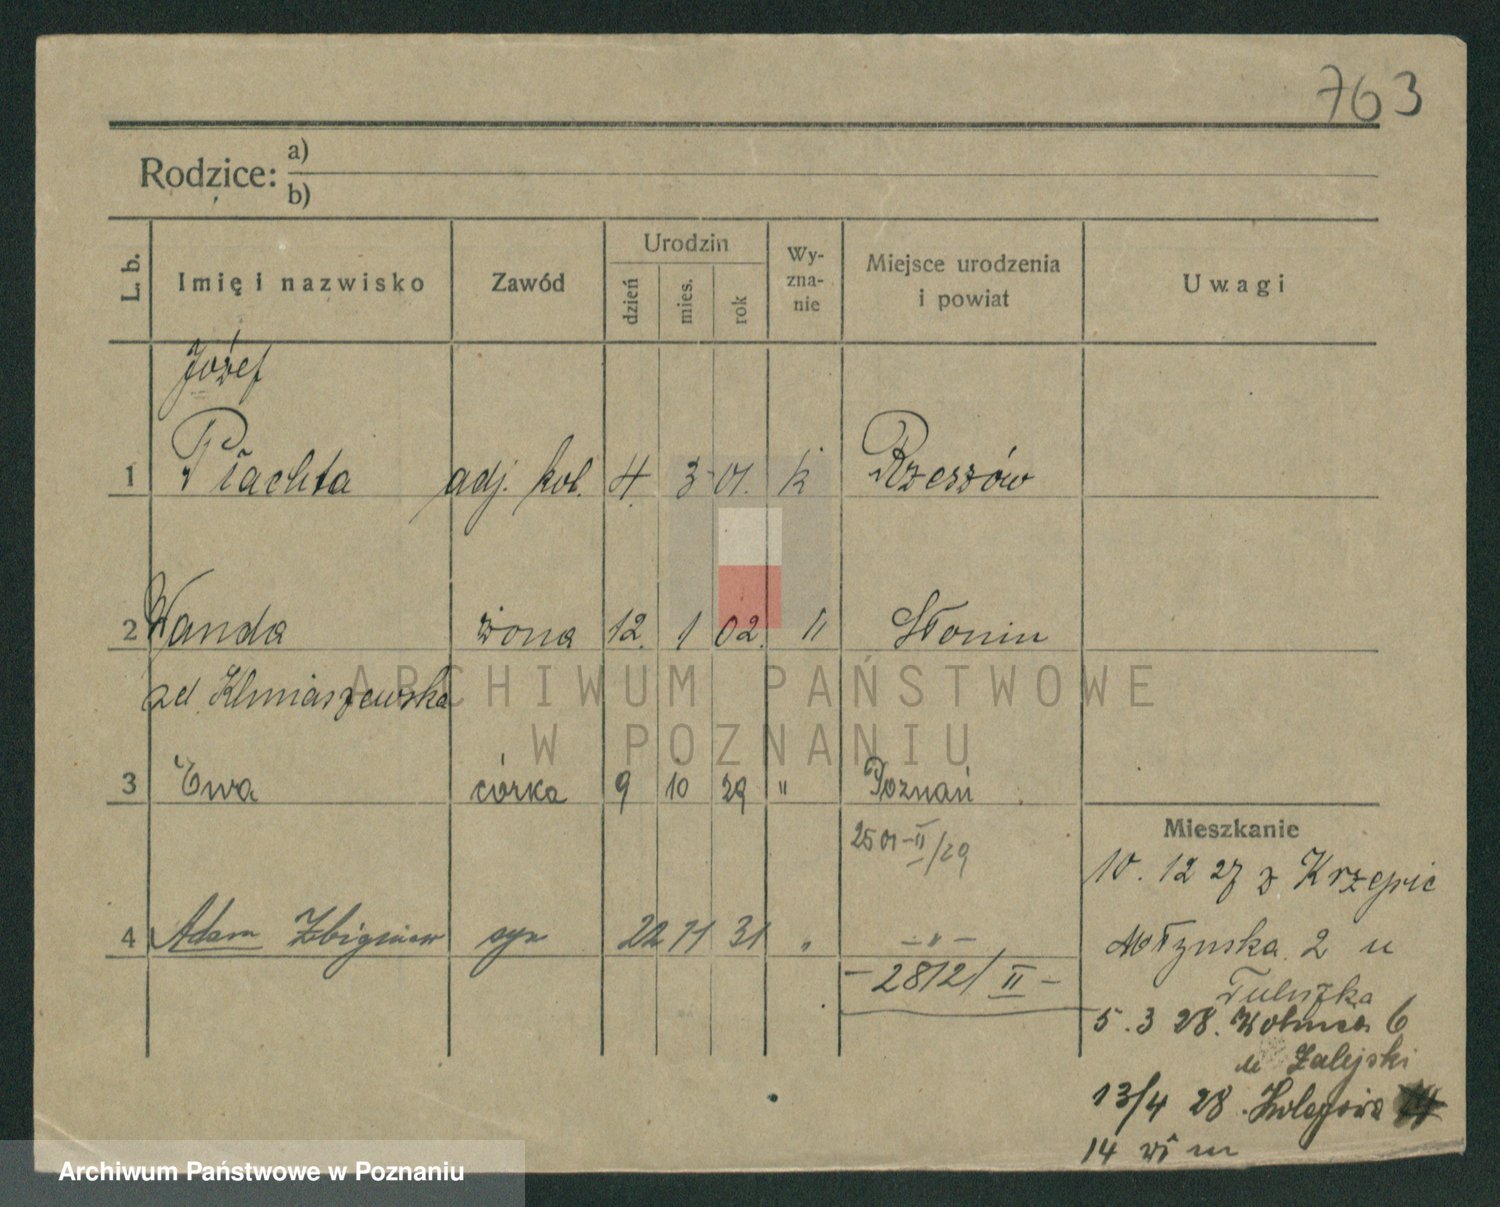 763
Rodzice: a)
b)
L. b. Imię i nazwisko Zawód Urodzin dzień mies. rok Wy-zna-nie Miejsce urodzenia i powiat Uwagi
Józef
1 Piachta adj. kol. 4. 3 01. k Rzeszów
2 Wanda żona 12. 1 02. " Słonim
ARCHIWUM PAŃSTWOWE
W POZNANIU
3 Ewa córka 9 10 29 " Poznań
Mieszkanie
2501-II/29
10. 12 27 z Krzepic
4 Adam Zbigniew syn 22 11 31 " - " -
2 u
- 2812/II -
5. 3 28. 6
u Zalejski
13/4 28. Kolejowa
14 m
Archiwum Państwowe w Poznaniu